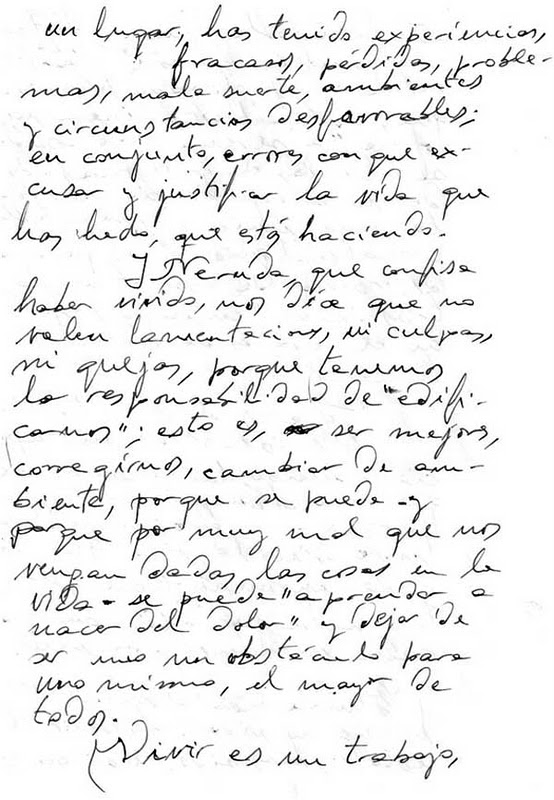 un lugar, has tenido experiencias,
fracasos, pérdidas, proble-
mas, mala suerte, ambientes
y circunstancias desfavorables;
en conjunto, errores con que ex-
cusar y justificar la vida que
has hecho, que estás haciendo.
Y Neruda, que confiesa
haber vivido, nos dice que no
valen lamentaciones, ni culpas,
ni quejas, porque tenemos
la responsabilidad de "edifi-
carnos"; esto es, ser mejores,
corregirnos, cambiar de am-
biente, porque se puede -y
porque por muy mal que nos
vengan dadas las cosas en la
vida- se puede "aprender a
nacer del dolor" y dejar de
ser uno un obstáculo para
uno mismo, el mayor de
todos.
Vivir es un trabajo,